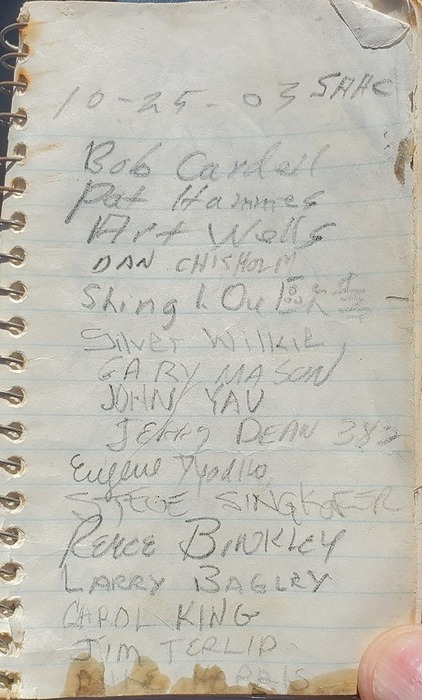 10-25-03 SAHC
Bob Cardell
Pat Hammes
Art Wells
DAN CHISHOLM
Shing L Ou
Silver Wilkie
GARY MASON
JOHN YAU
JERRY DEAN 383
Eugene
STEVE
BINKLEY
LARRY BAGLEY
CAROL KING
JIM TERLIP
HARRIS